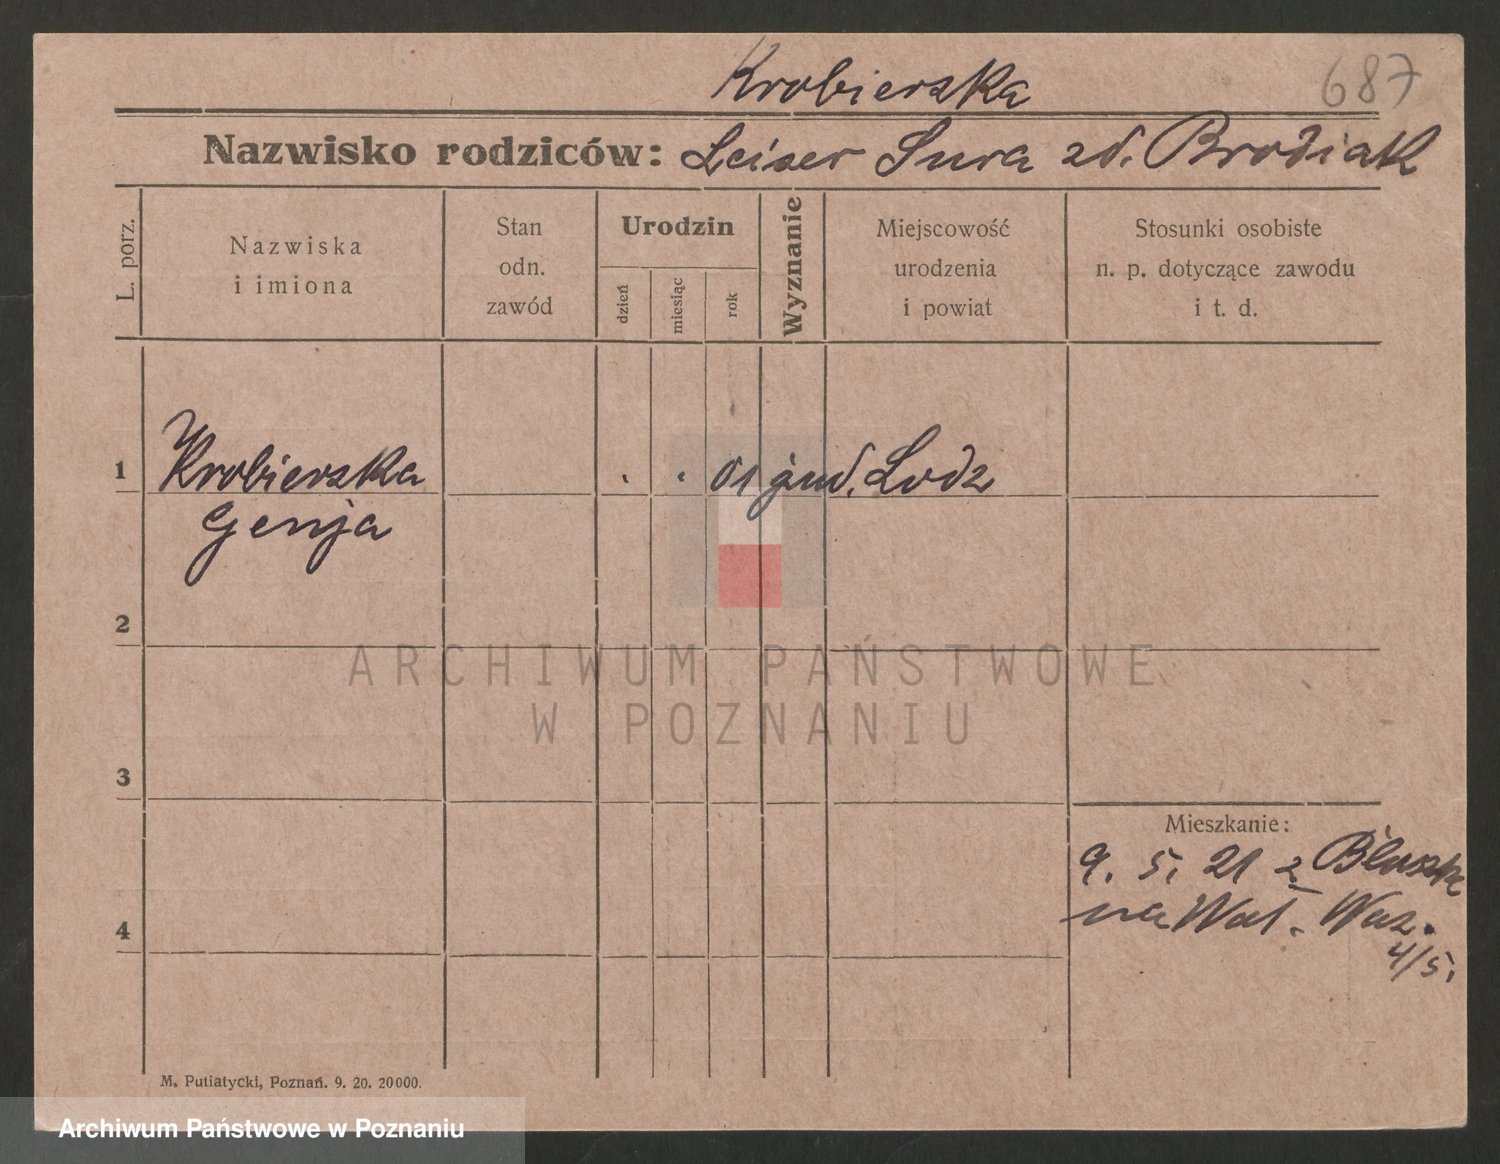 Krobierska
687
Nazwisko rodziców: Leiser Sura zd. Brodiak
L. porz.
Nazwiska
i imiona
Stan
odn.
zawód
Urodzin
dzień
miesiąc
rok
Wyznanie
Miejscowość
urodzenia
i powiat
Stosunki osobiste
n. p. dotyczące zawodu
i t. d.
1
Krobierska . . 01 Lodz
Genja
2
ARCHIWUM PAŃSTWOWE
W POZNANIU
3
Mieszkanie:
9. 5. 21 z
na Wał.
4
4/5.
M. Putiatycki, Poznań. 9. 20. 20000.
Archiwum Państwowe w Poznaniu